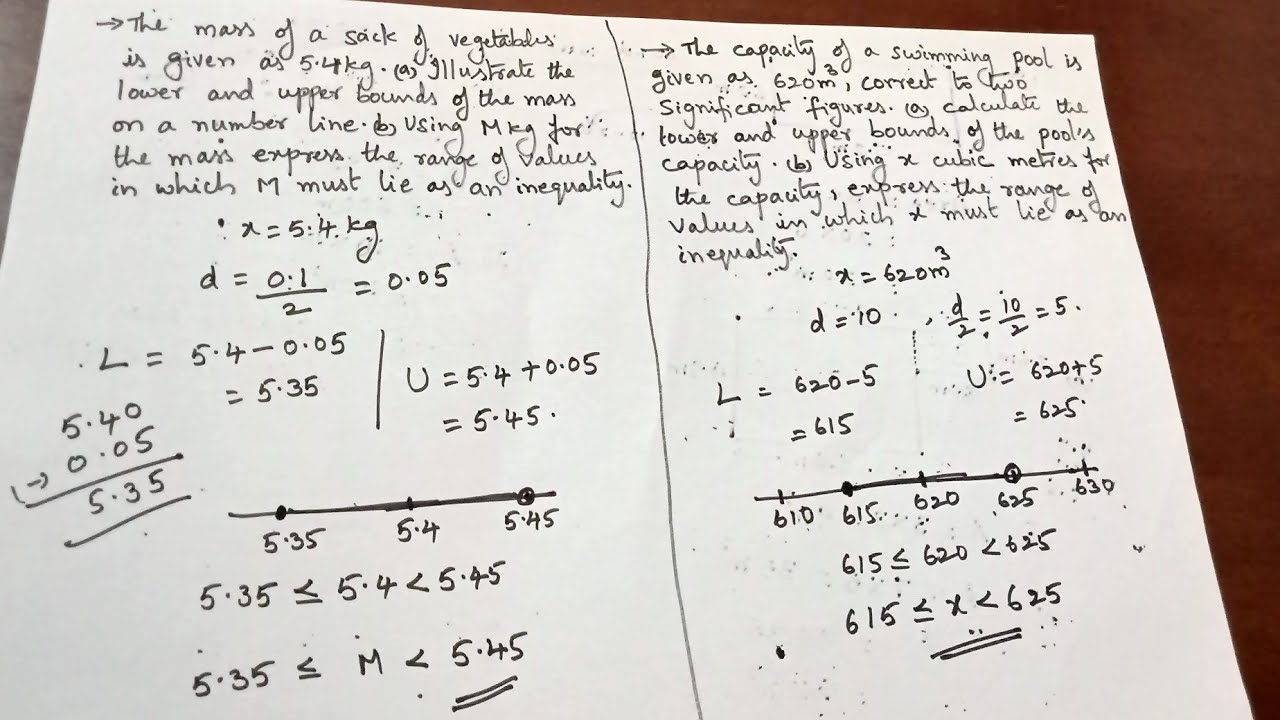 → The mass of a sack of vegetables
is given as 5.4kg. (a) Illustrate the
lower and upper bounds of the mass
on a number line. (b) Using M kg for
the mass express the range of values
in which M must lie as an inequality.
x = 5.4 kg
d = 0.1/2 = 0.05
L = 5.4 - 0.05
= 5.35
U = 5.4 + 0.05
= 5.45.
5.40
→ 0.05
5.35
5.35 5.4 5.45
5.35 ≤ 5.4 < 5.45
5.35 ≤ M < 5.45
→ The capacity of a swimming pool is
given as 620m³, correct to two
significant figures. (a) calculate the
lower and upper bounds of the pool's
capacity. (b) Using x cubic metres for
the capacity, express the range of
values in which x must lie as an
inequality.
x = 620m³
d = 10, d/2 = 10/2 = 5.
L = 620-5
= 615
U = 620+5
= 625
610 615 620 625 630
615 ≤ 620 < 625
615 ≤ x < 625